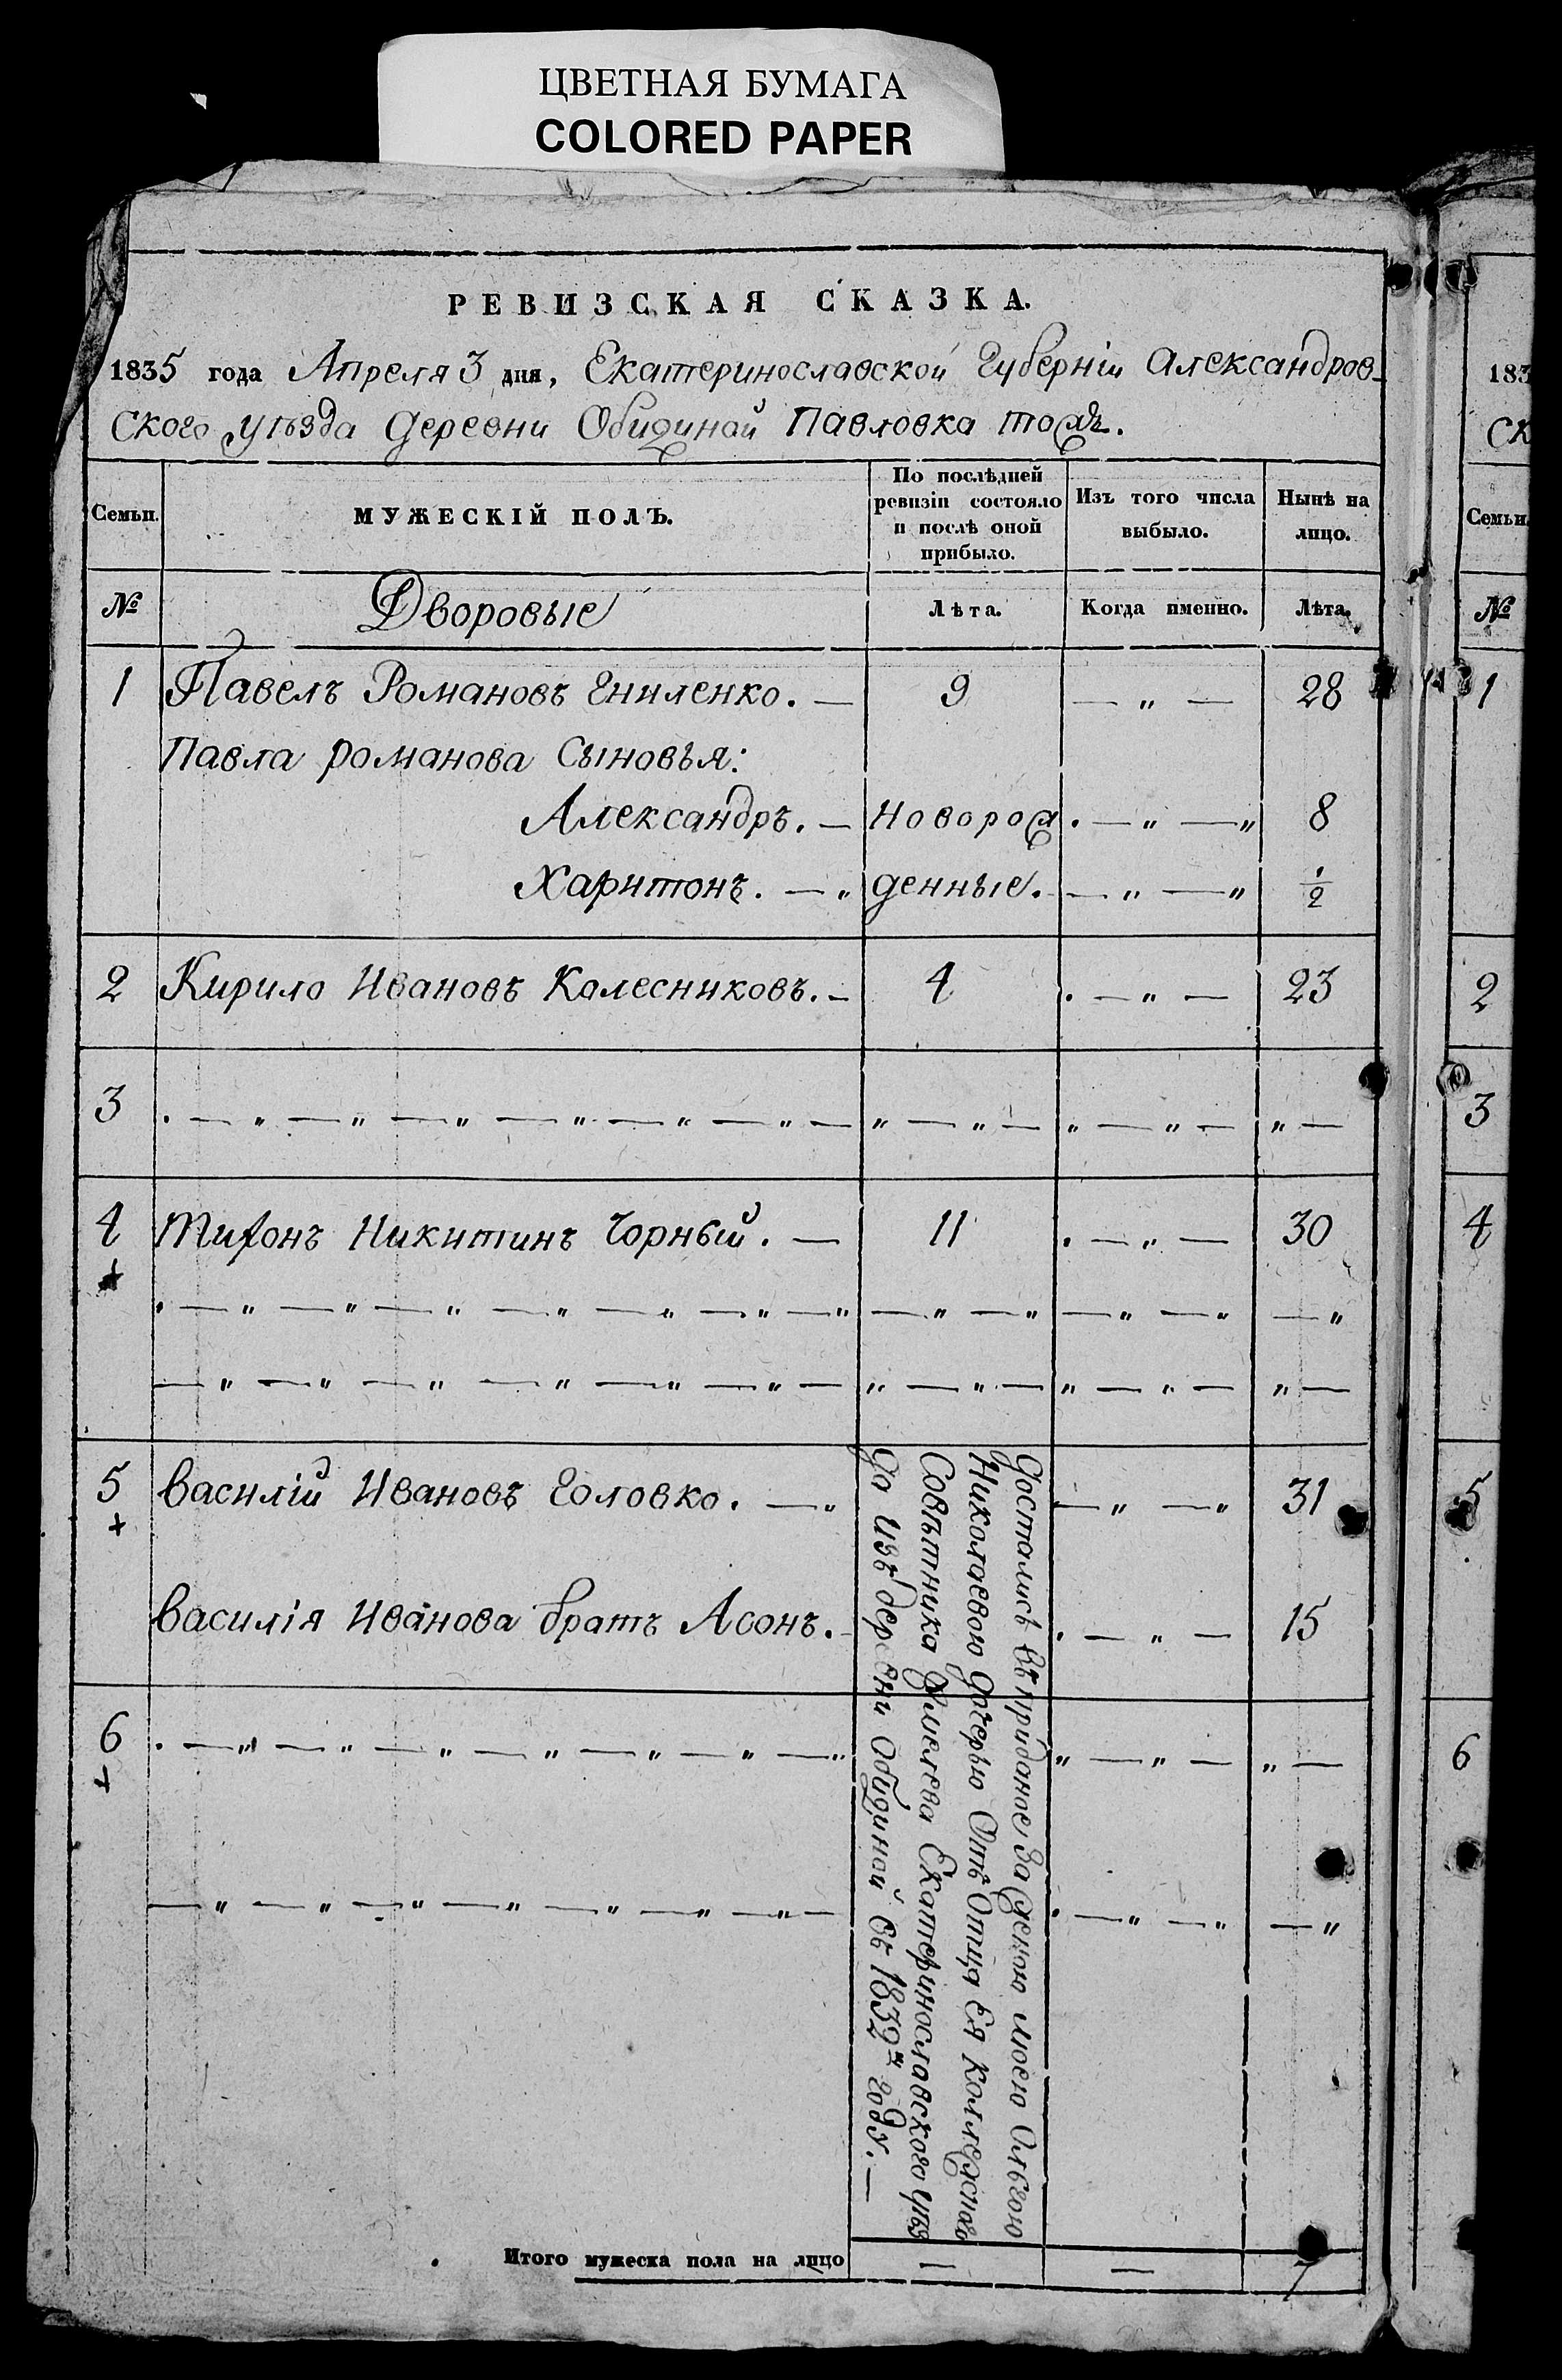 ЦВЕТНАЯ БУМАГА
COLORED PAPER
РЕВИЗСКАЯ СКАЗКА.
1835 года Апреля 3 дня, Екатеринославской Губерніи Александров-
ского уѣзда деревни Обидиной Павловка тожъ.
Семьи.
МУЖЕСКІЙ ПОЛЪ.
По послѣдней ревизіи состояло и послѣ оной прибыло.
Изъ того числа выбыло.
Нынѣ на лицо.
№ Дворовые Лѣта. Когда именно. Лѣта.
1 Павелъ Романовъ Гниленко. — 9 — „ — 28
Павла романова Сыновья:
Александръ. — Новорож . — „ — „ 8
Харитонъ. — „ денные. — „ — „ 1/2
2 Кирило Ивановъ Колесниковъ. — 4 . — „ — 23
3 . — „ — „ — „ — „ — „ — „ — „ — „ — „ — „ — „ —
4 Тихонъ Никитинъ Чорный. — 11 . — „ — 30
+ . — „ — „ — „ — „ — „ — „ — „ — „ — „ — „ — „ — „
— „ — „ — „ — „ — „ — „ — „ — „ — „ — „ — „ —
5 Василій Ивановъ Головко. — „ — „ — „ 31
+
Василія Иванова братъ Асонъ. . — „ — 15
достались въ приданое, за женою моею Ольгою
Николаевою дочерью Отъ Отца Ея Коллежского
Совѣтника Екатеринославского уѣз
да изъ деревни Обидиной въ 1832м году. —
6 . — „ — „ — „ — „ — „ — „ — „ „ — „ — „ —
+
— „ — „ — „ — „ — „ — „ — „ — . — „ — „ — „
Итого мужеска пола на лицо — — 7
183
ск
Семьи.
№
1
2
3
4
5
6